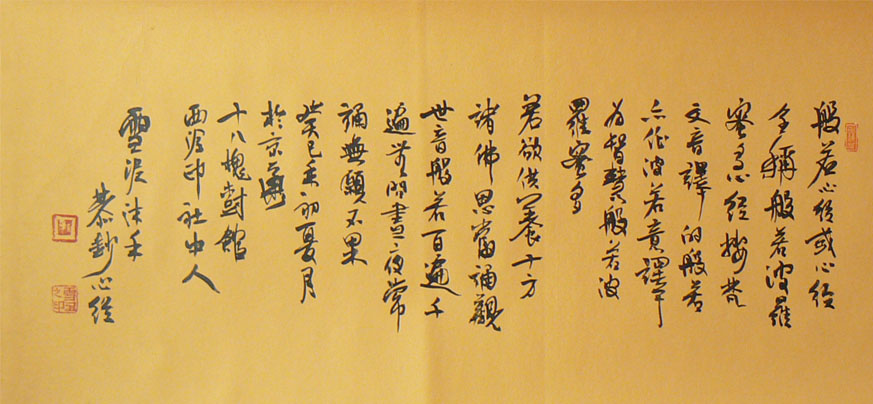 般若心经或心经
全稱般若波羅
蜜多心经按梵
文音譯的般若
亦作波若意譯
为智慧般若波
羅蜜多
若欲供養十方
諸佛恩當誦觀
世音般若百遍千
遍無間晝夜常
誦無願不果
癸巳年初夏月
於京
十八槐尌館
西泠印社中人
雪泥
恭鈔心经